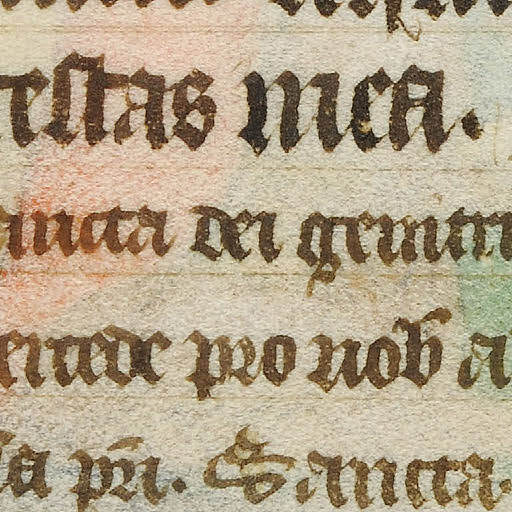 estas mea.
ancta dei genitri
ercede pro nob a
pri. Sancta